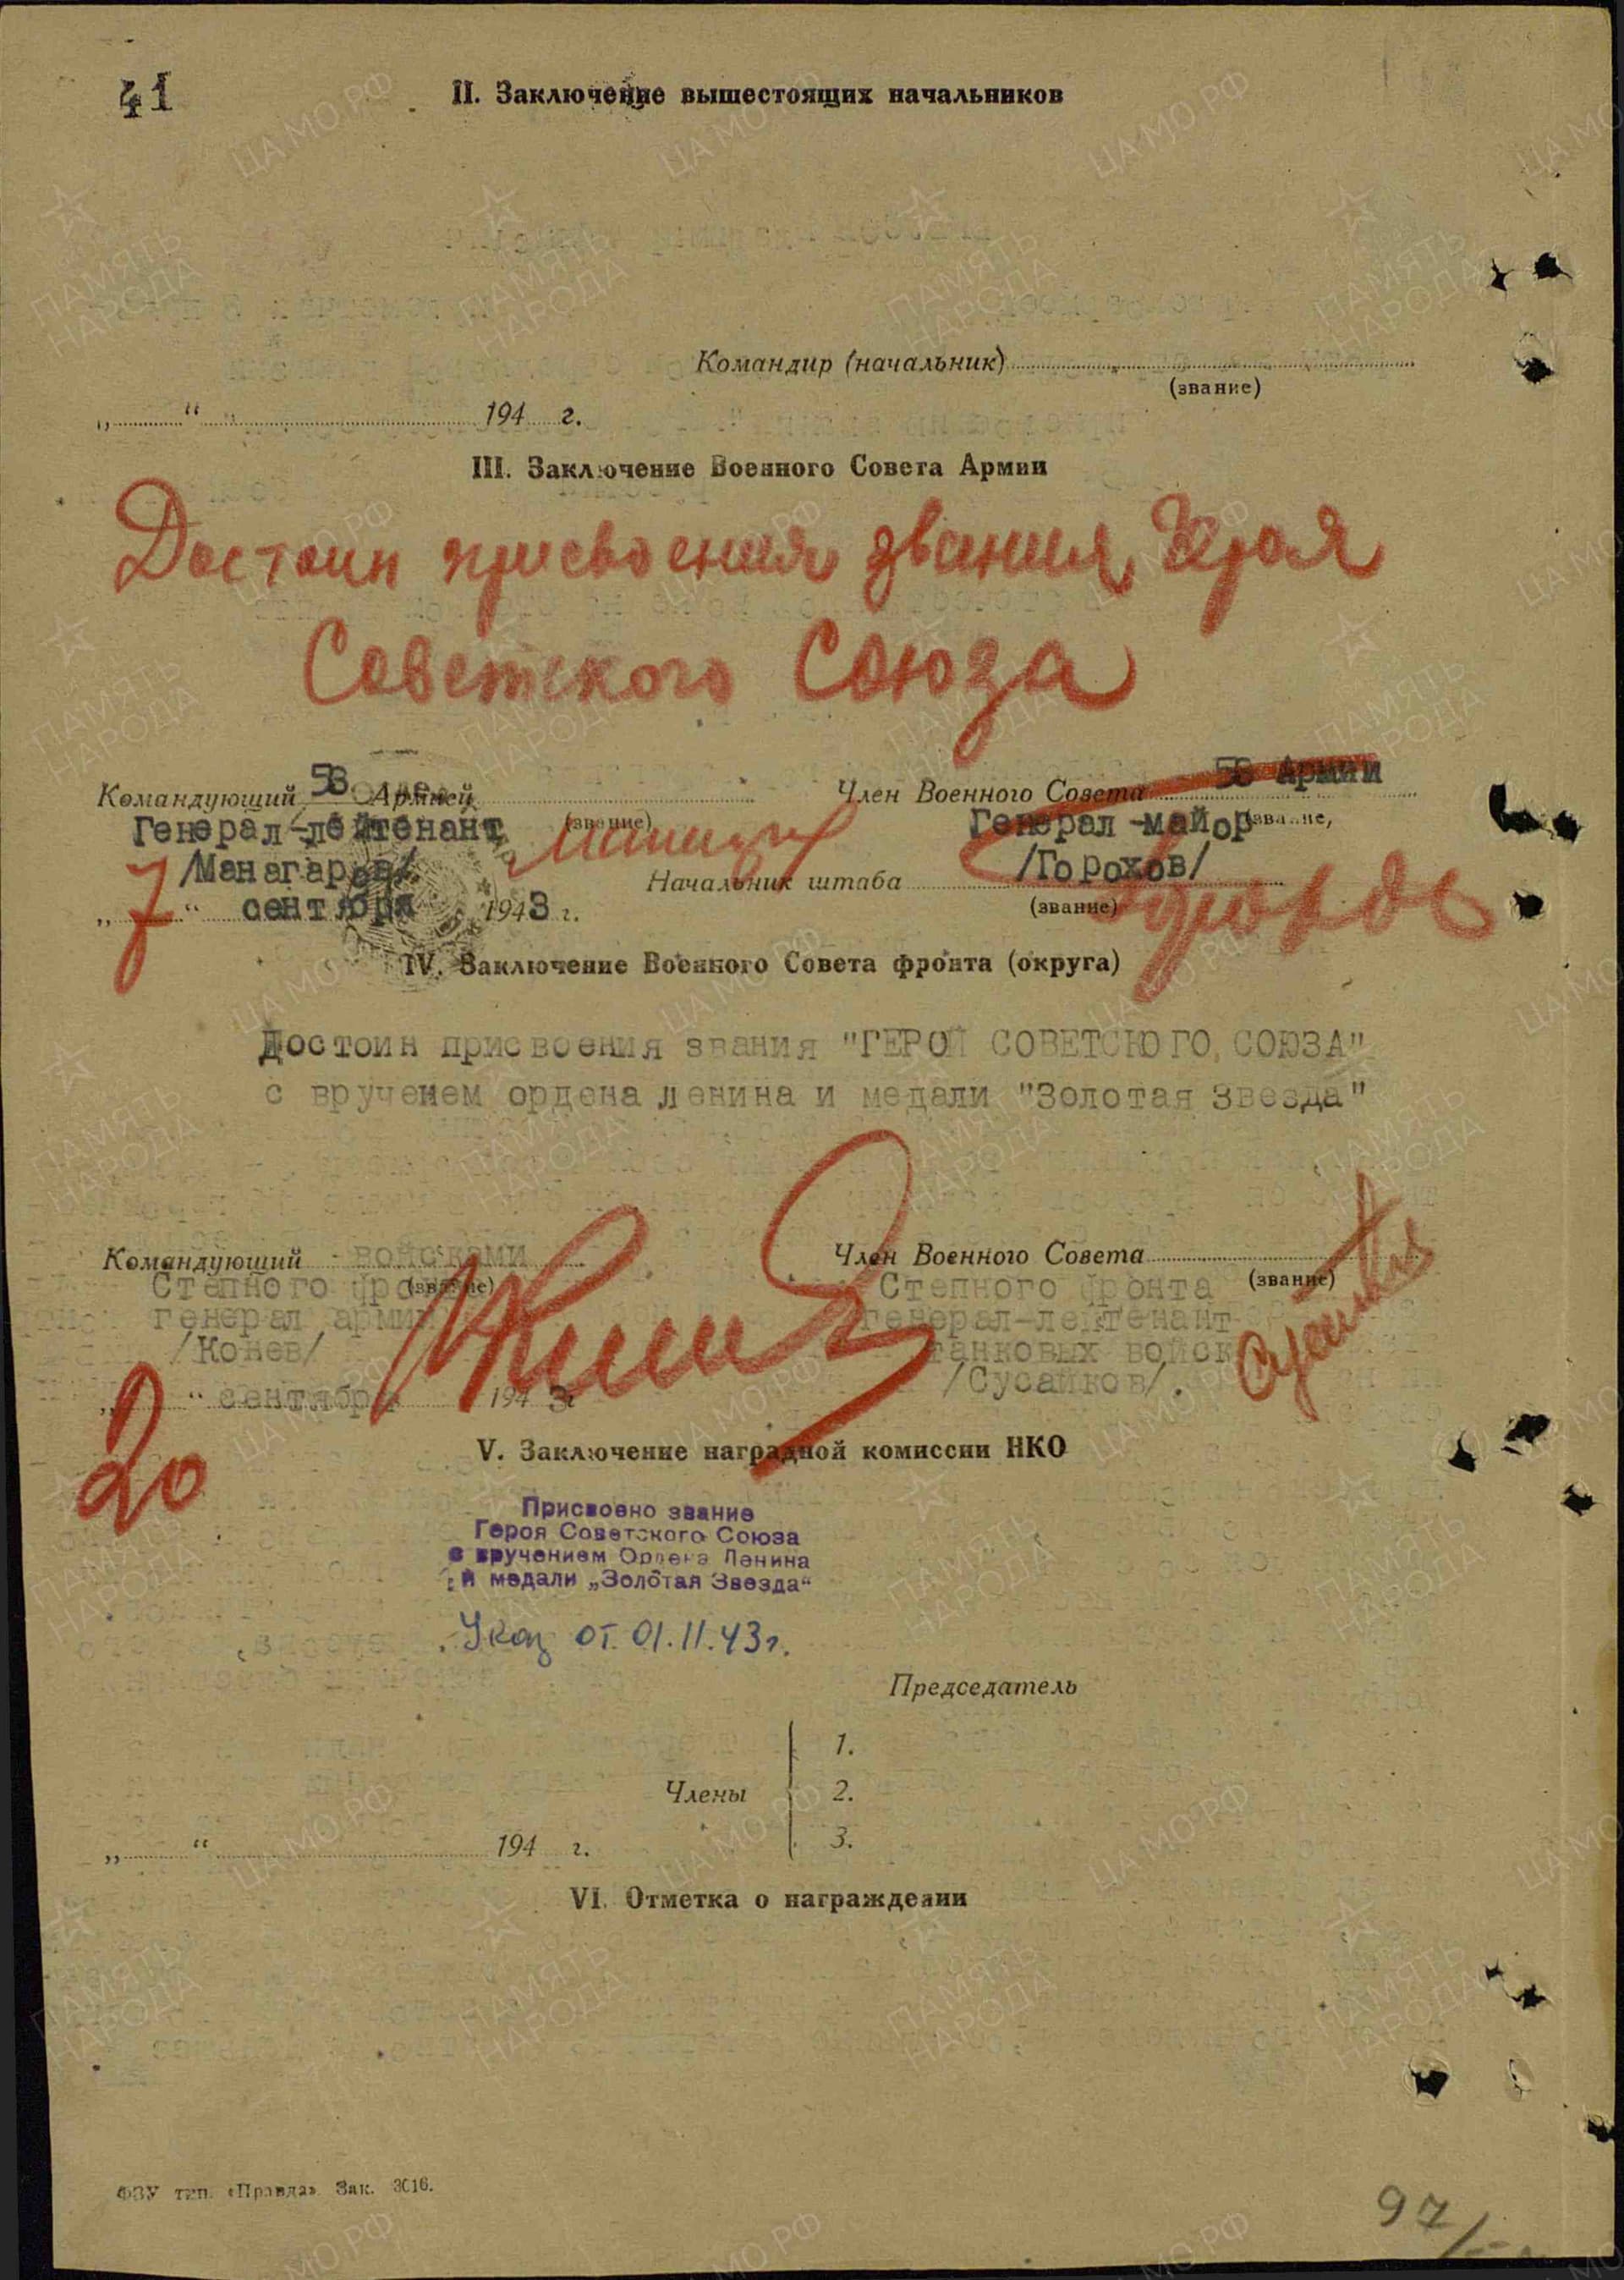 41
II. Заключение вышестоящих начальников
Командир (начальник)
(звание)
„ “ 194 г.
III. Заключение Военного Совета Армии
Достоин присвоения звания Героя
Советского Союза
Командующий 53 Армией
Член Военного Совета 53 Армии
Генерал-лейтенант (звание)
Генерал-майор (звание)
/Манагаров/
Начальник штаба /Горохов/
(звание)
„7“ сентября 1943 г.
IV. Заключение Военного Совета фронта (округа)
Достоин присвоения звания "ГЕРОЙ СОВЕТСКОГО СОЮЗА"
с вручением ордена Ленина и медали "Золотая Звезда"
Командующий войсками
Член Военного Совета
Степного фронта (звание)
Степного фронта (звание)
генерал армии
генерал-лейтенант
/Конев/
танковых войск
/Сусайков/.
„20“ сентября 1943г
V. Заключение наградной комиссии НКО
Присвоено звание
Героя Советского Союза
с вручением Ордена Ленина
и медали „Золотая Звезда“
Указ от 01.11.43г.
Председатель
1.
Члены 2.
3.
„ “ 194 г.
VI. Отметка о награждении
ФЗУ тип. «Правда» Зак. 3016.
97/